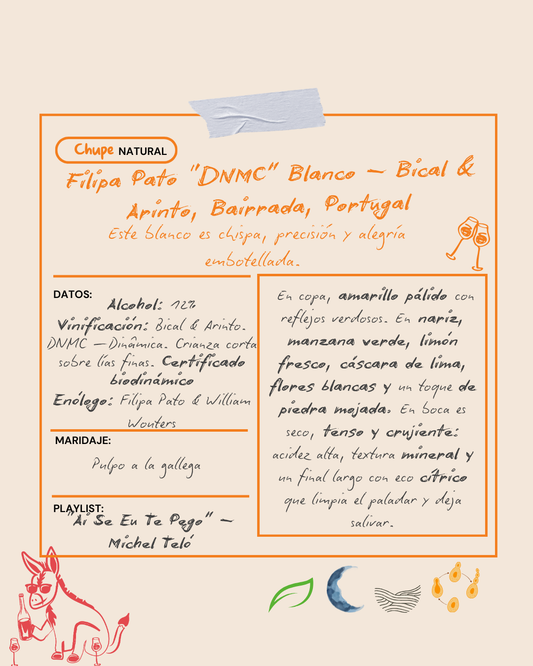 Chupe NATURAL
Filipa Pato "DNMC" Blanco – Bical &
Arinto, Bairrada, Portugal
Este blanco es chispa, precisión y alegría
embotellada.
DATOS:
Alcohol: 12%
Vinificación: Bical & Arinto.
DNMC – Dinâmica. Crianza corta
sobre lías finas. Certificado
biodinámico
Enólogo: Filipa Pato & William
Wouters
MARIDAJE:
Pulpo a la gallega
PLAYLIST:
"Ai Se Eu Te Pego" –
Michel Teló
En copa, amarillo pálido con
reflejos verdosos. En nariz,
manzana verde, limón
fresco, cáscara de lima,
flores blancas y un toque de
piedra mojada. En boca es
seco, tenso y crujiente:
acidez alta, textura mineral y
un final largo con eco cítrico
que limpia el paladar y deja
salivar.